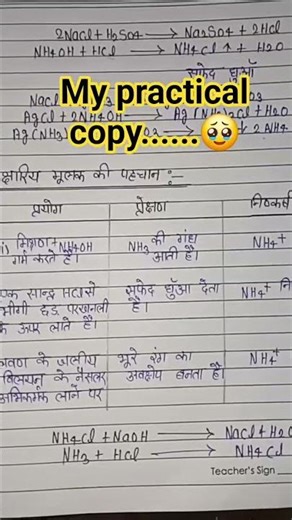 2NaCl + H₂SO₄ → Na₂SO₄ + 2HCl
NH₄OH + HCl → NH₄Cl ↑ + H₂O
सफेद धुआँ
NaCl
My practical
copy......🥹
AgCl + 2NH₄OH → Ag(NH₃)₂Cl + H₂O
Ag(NH₃) 2NH₄
क्षारीय मूलक की पहचान :—
प्रयोग प्रेक्षण निष्कर्ष
i) मिश्रण + NaOH NH₃ की गंध NH₄⁺
गर्म करते है। आती है।
एक सान्द्र HCl से सफेद धुँआ देता NH₄⁺ नि
भीगी छड़ परखनली है।
के ऊपर लाते है।
के जलीय भूरे रंग का NH₄⁺
विलयन के नैसलर अवक्षेप बनता है।
अभिकर्मक लाने पर
NH₄Cl + NaOH → NaCl + H₂O
NH₃ + HCl → NH₄Cl
Teacher's Sign